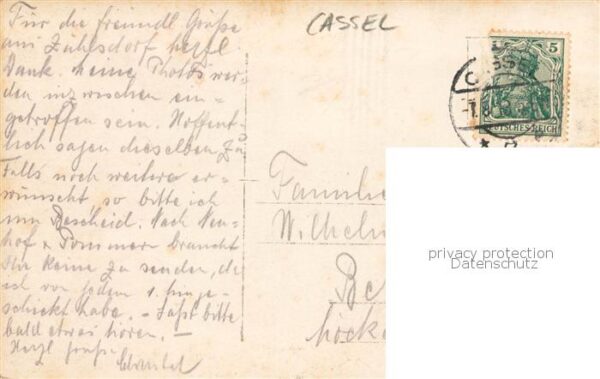 CASSEL
Für die freundl. Grüße
aus Zühlsdorf herzl.
Dank. Meine Photos wer-
den inzwischen ein-
getroffen sein. Hoffent-
lich sagen dieselben zu
Falls noch weitere er-
wünscht, so bitte ich
um Bescheid. Nach Neu-
hof & Pommern braucht
Ihr keine zu senden, da
ich von jedem 1. hinge-
schickt habe. - Laßt bitte
bald etwas hören. -
Herzl. Gruß
5
CASSEL
DEUTSCHES REICH
Familie
Wilhelm
Be
höck
privacy protection
Datenschutz